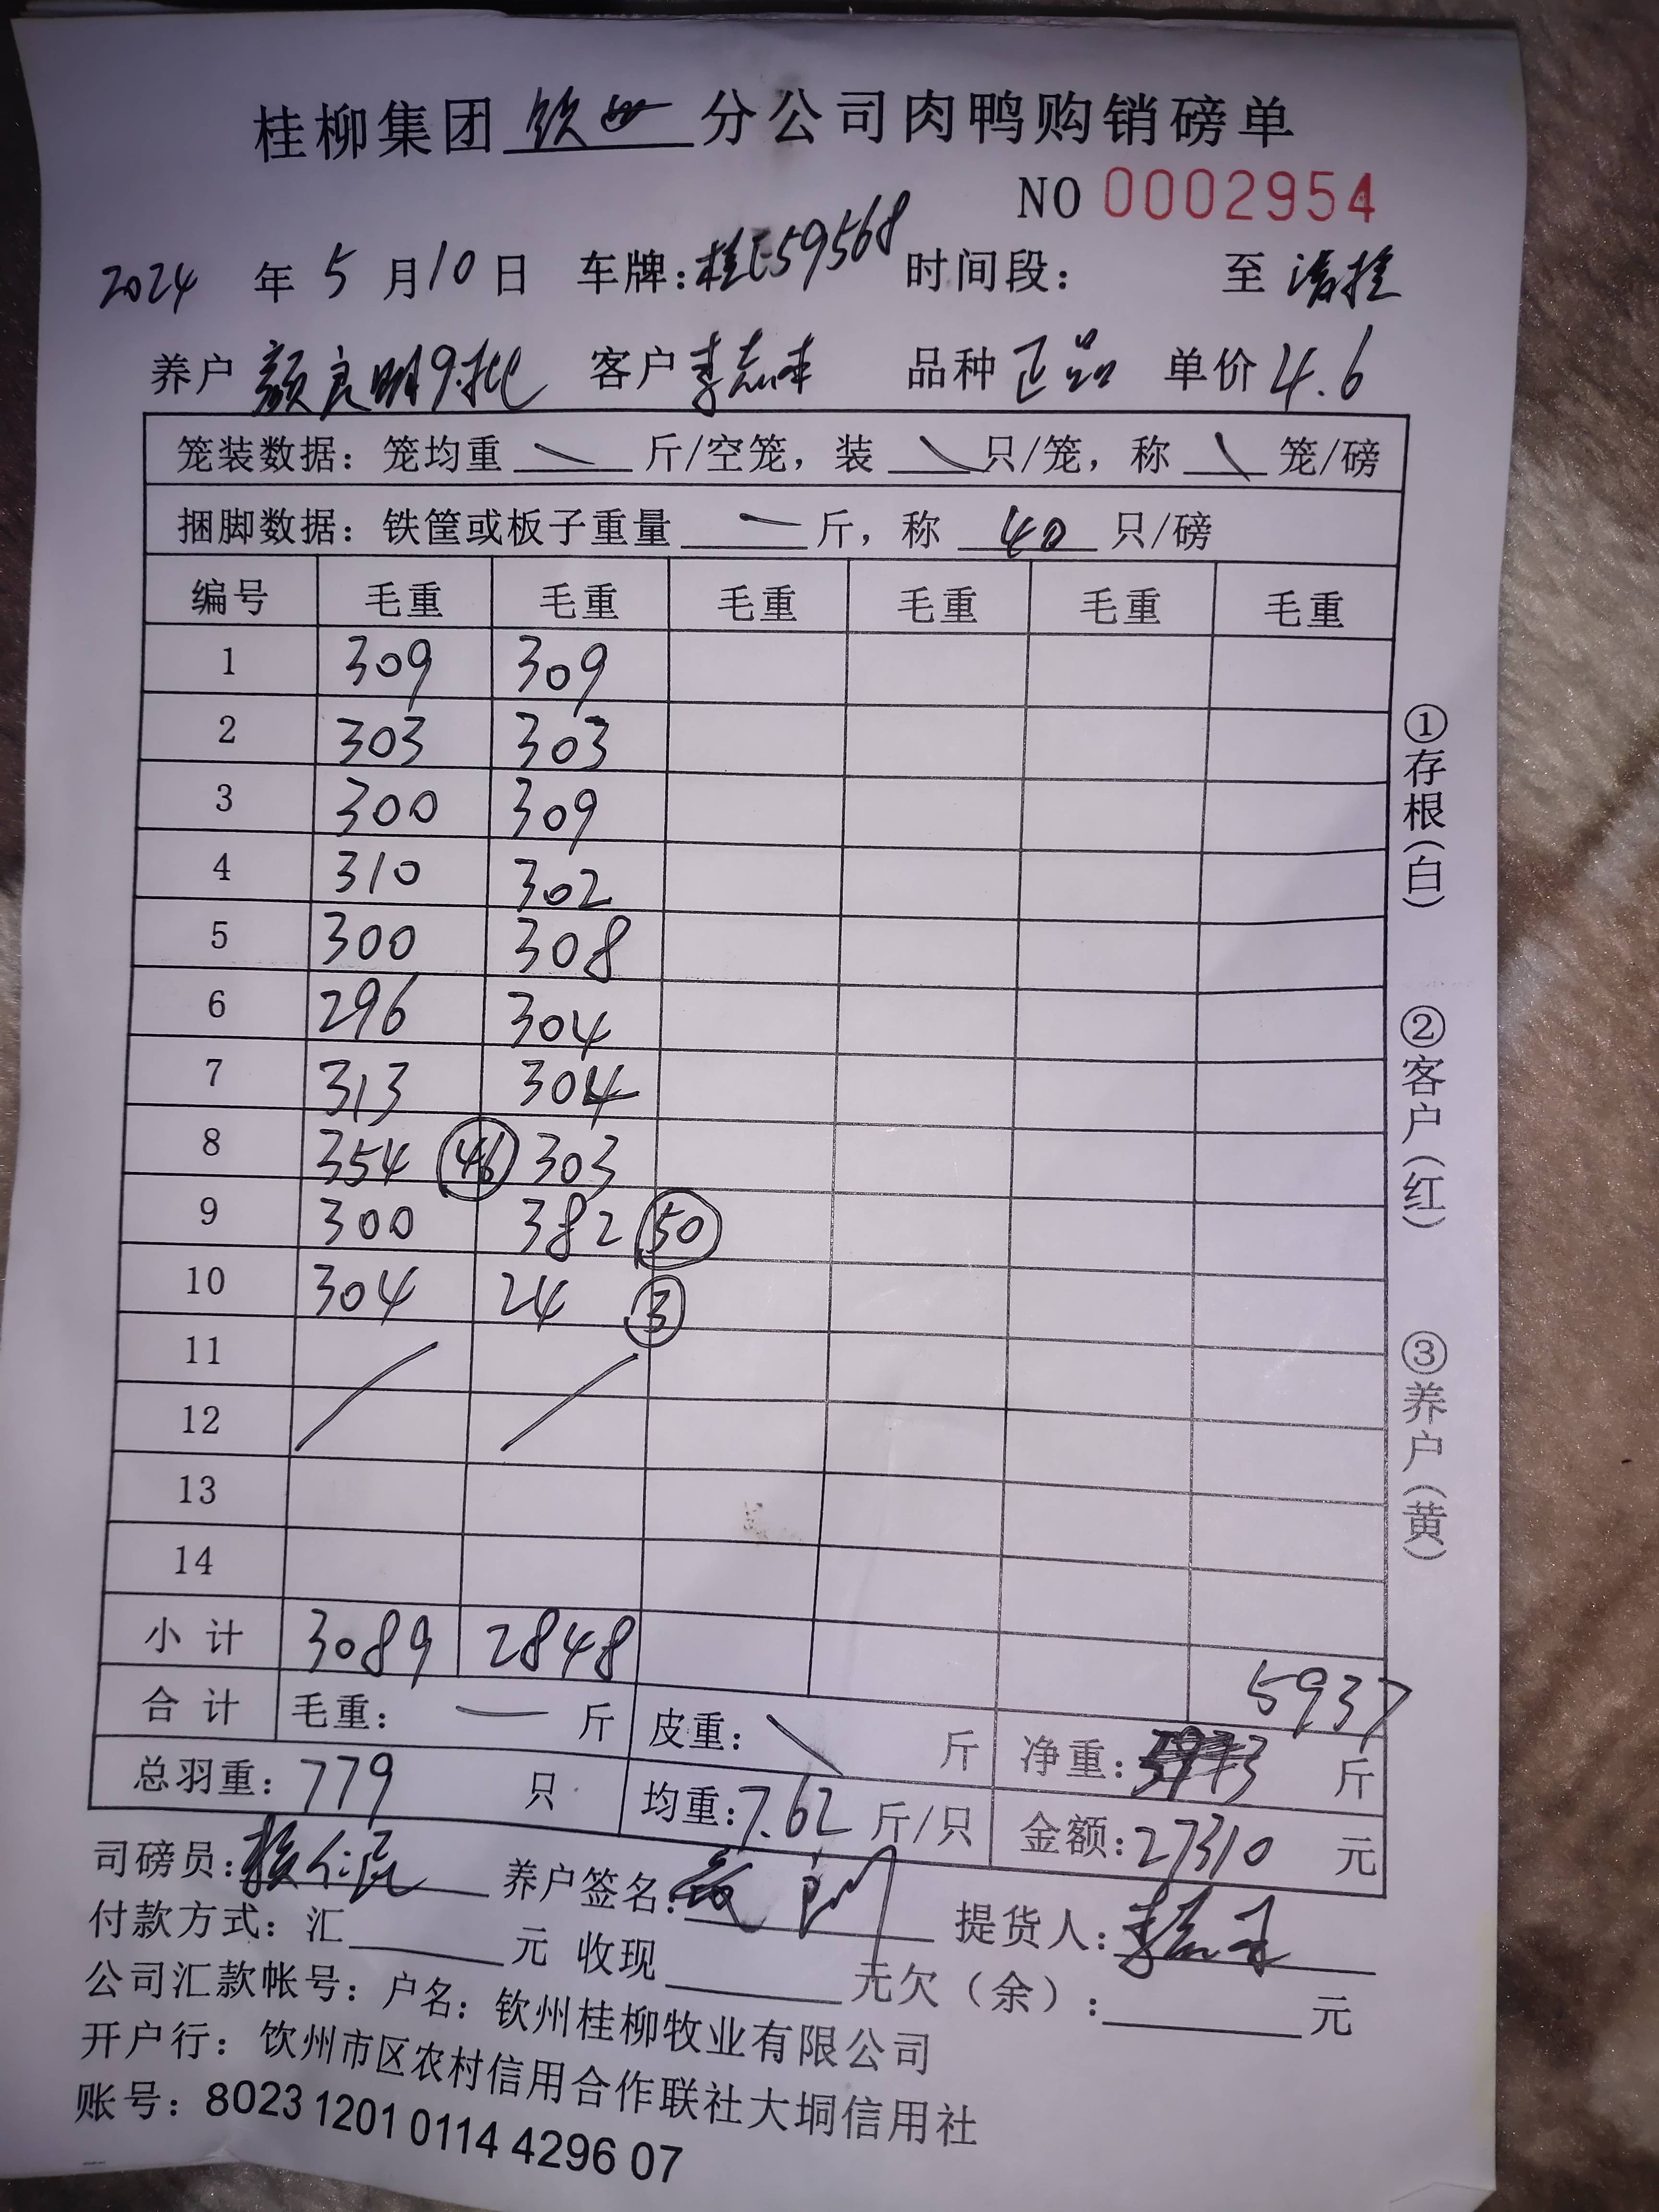 桂柳集团 钦州 分公司肉鸭购销磅单
NO 0002954
2024 年 5 月 10 日 车牌:桂E59568 时间段: 至
养户 颜良明9批 客户 品种 正品 单价 4.6
笼装数据:笼均重 斤/空笼,装 只/笼,称 笼/磅
捆脚数据:铁筐或板子重量 一 斤,称 40 只/磅
编号 毛重 毛重 毛重 毛重 毛重 毛重
1 309 309
2 303 303
3 300 309
4 310 302
5 300 308
6 296 304
7 313 304
8 354 46 303
9 300 382 50
10 304 24 3
11
12
13
14
小计 3089 2848 5937
合计 毛重: 一 斤 皮重: 斤 净重: 斤
总羽重: 779 只 均重: 7.62 斤/只 金额: 27310 元
司磅员: 养户签名: 提货人:
付款方式:汇 元 收现 元欠(余): 元
公司汇款帐号:户名:钦州桂柳牧业有限公司
开户行:饮州市区农村信用合作联社大垌信用社
账号:8023 1201 0114 4296 07
①存根(白) ②客户(红) ③养户(黄)